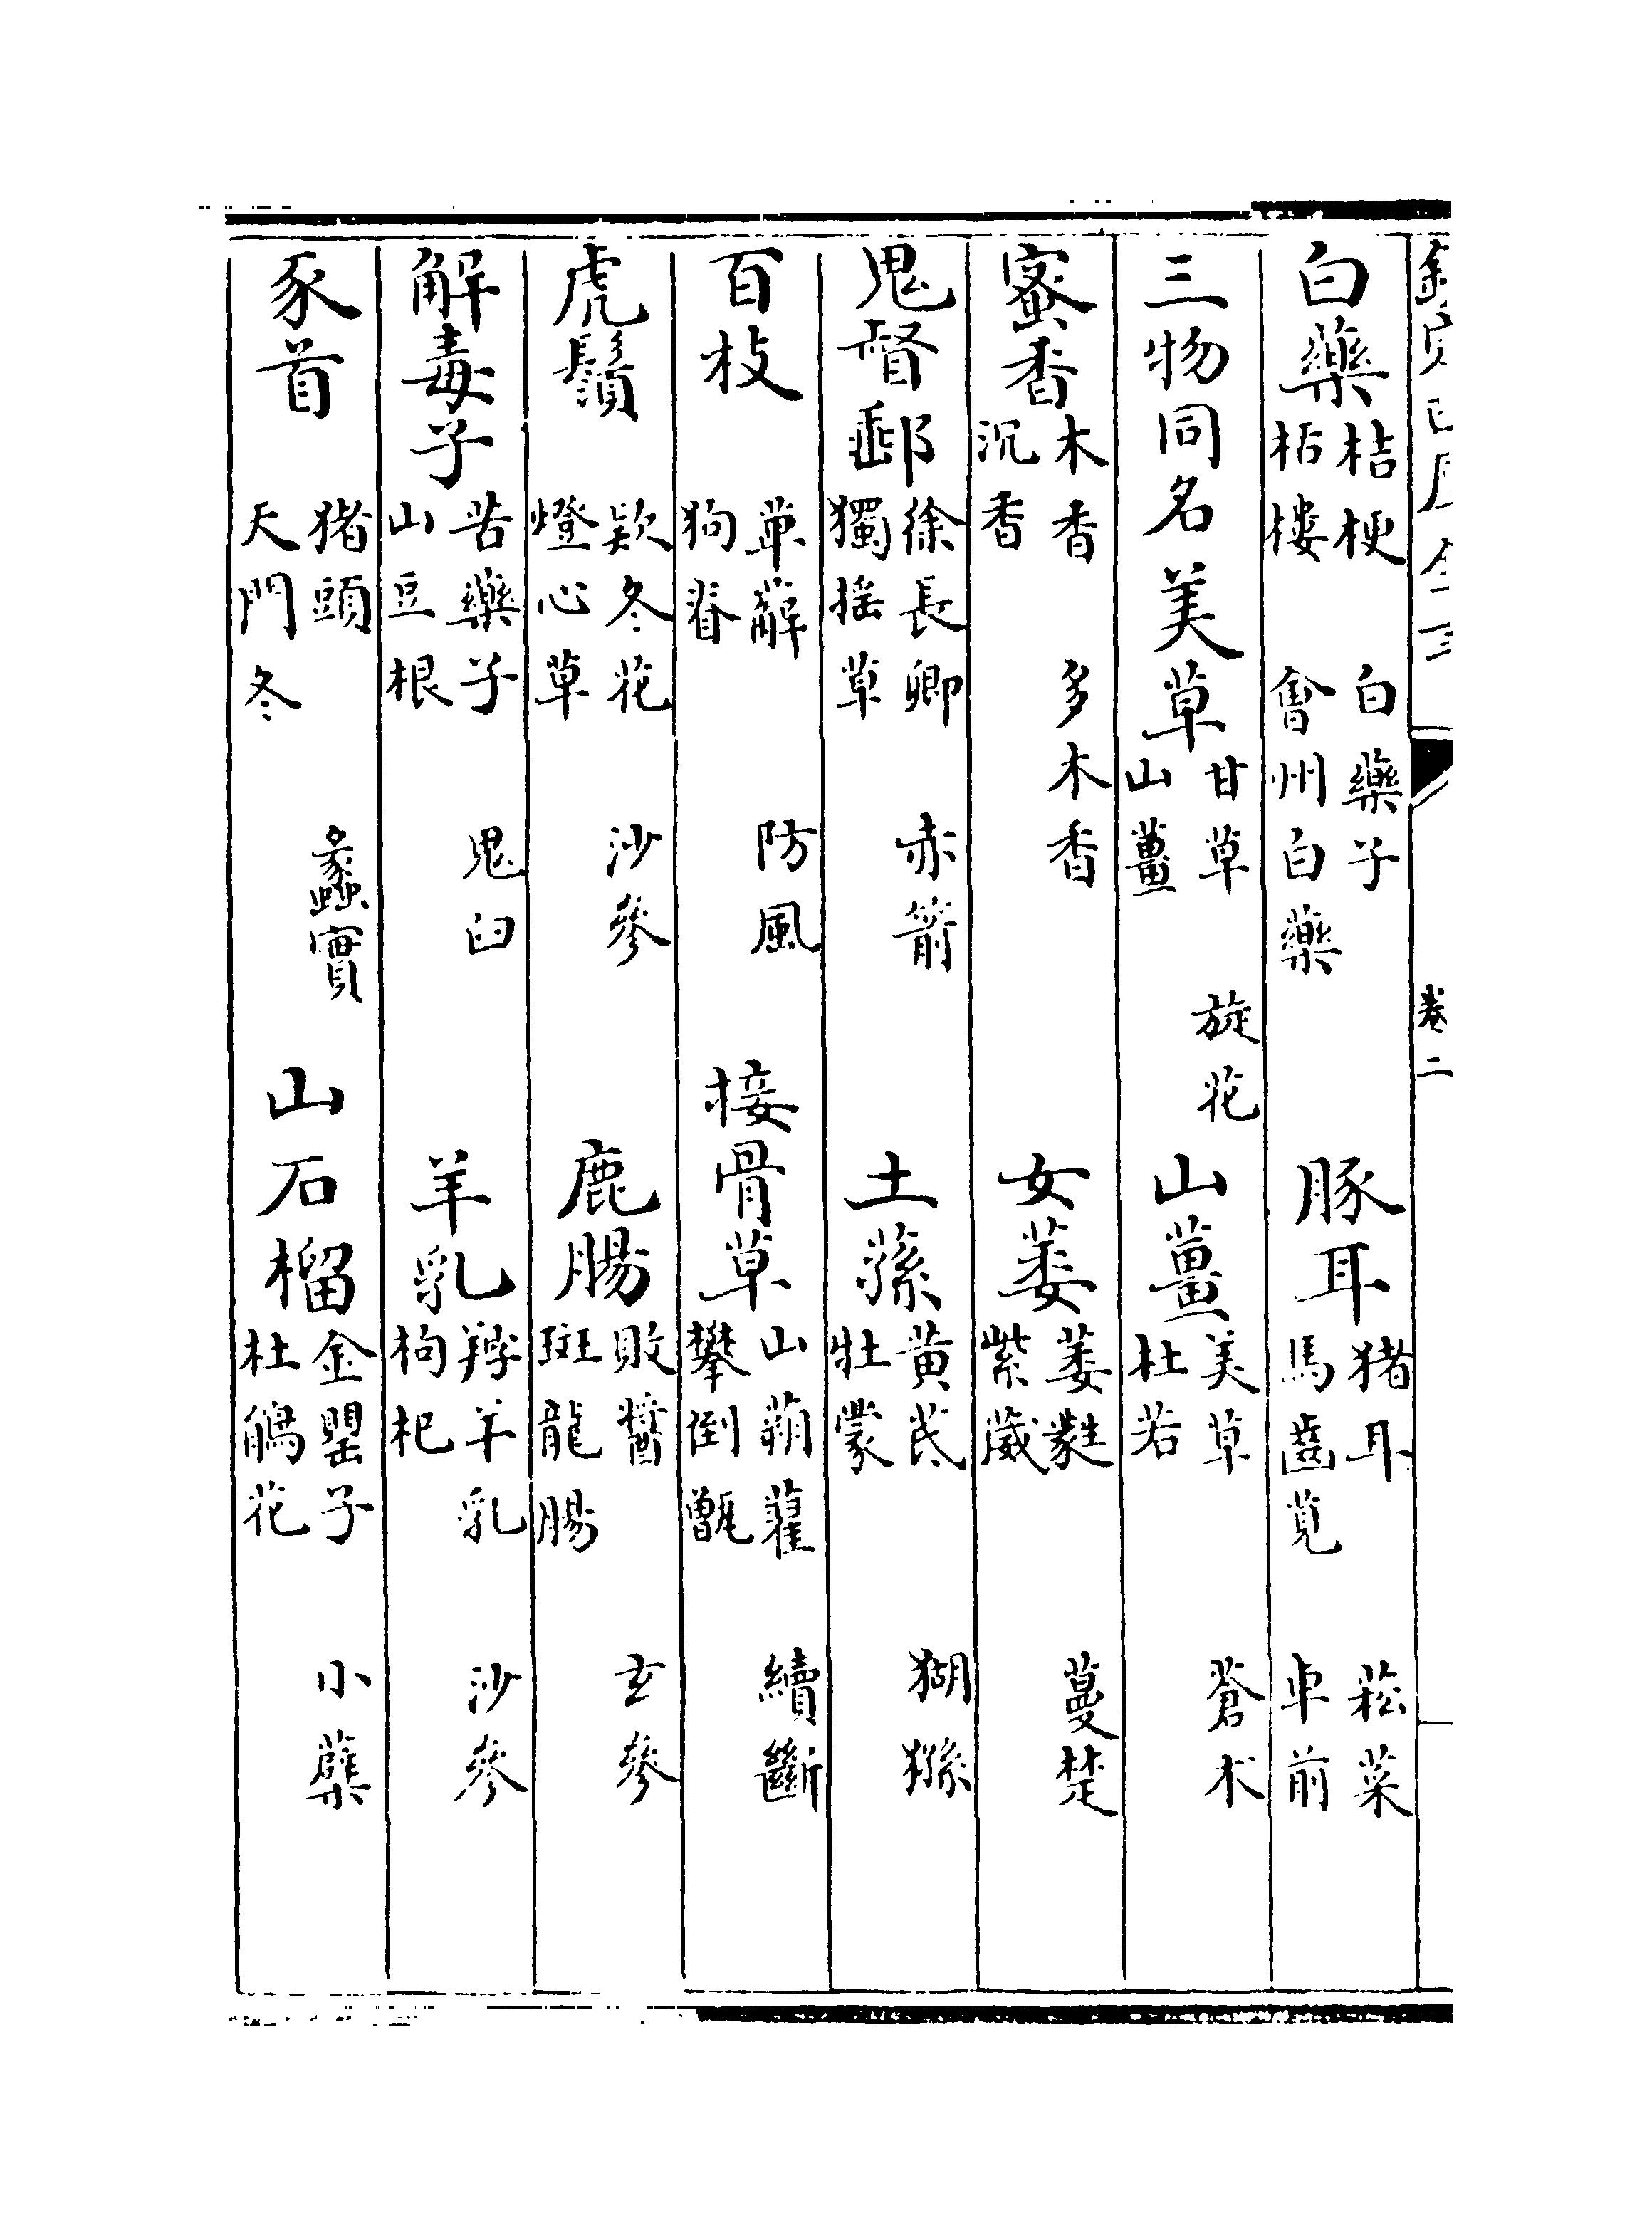 卷二
白藥桔梗 白藥子 栝樓 會州白藥 豚耳猪耳 菘菜 馬齒莧 車前
三物同名 美草甘草 旋花 山薑 山薑美草 蒼术 杜若
蜜香木香 多木香 沉香 女萎萎蕤 蔓楚 紫葳
鬼督郵徐長卿 赤箭 獨摇草 土蓀黄芪 猢猻 牡蒙
百枝萆薢 防風 狗脊 接骨草山蒴藋 續斷 攀倒甑
虎鬚欵冬花 沙參 燈心草 鹿腸敗醬 玄參 斑龍腸
解毒子苦藥子 鬼臼 山豆根 羊乳羖羊乳 沙參 枸杞
豕首猪頭 蠡實 天門冬 山石榴金罌子 小蘗 杜鵑花